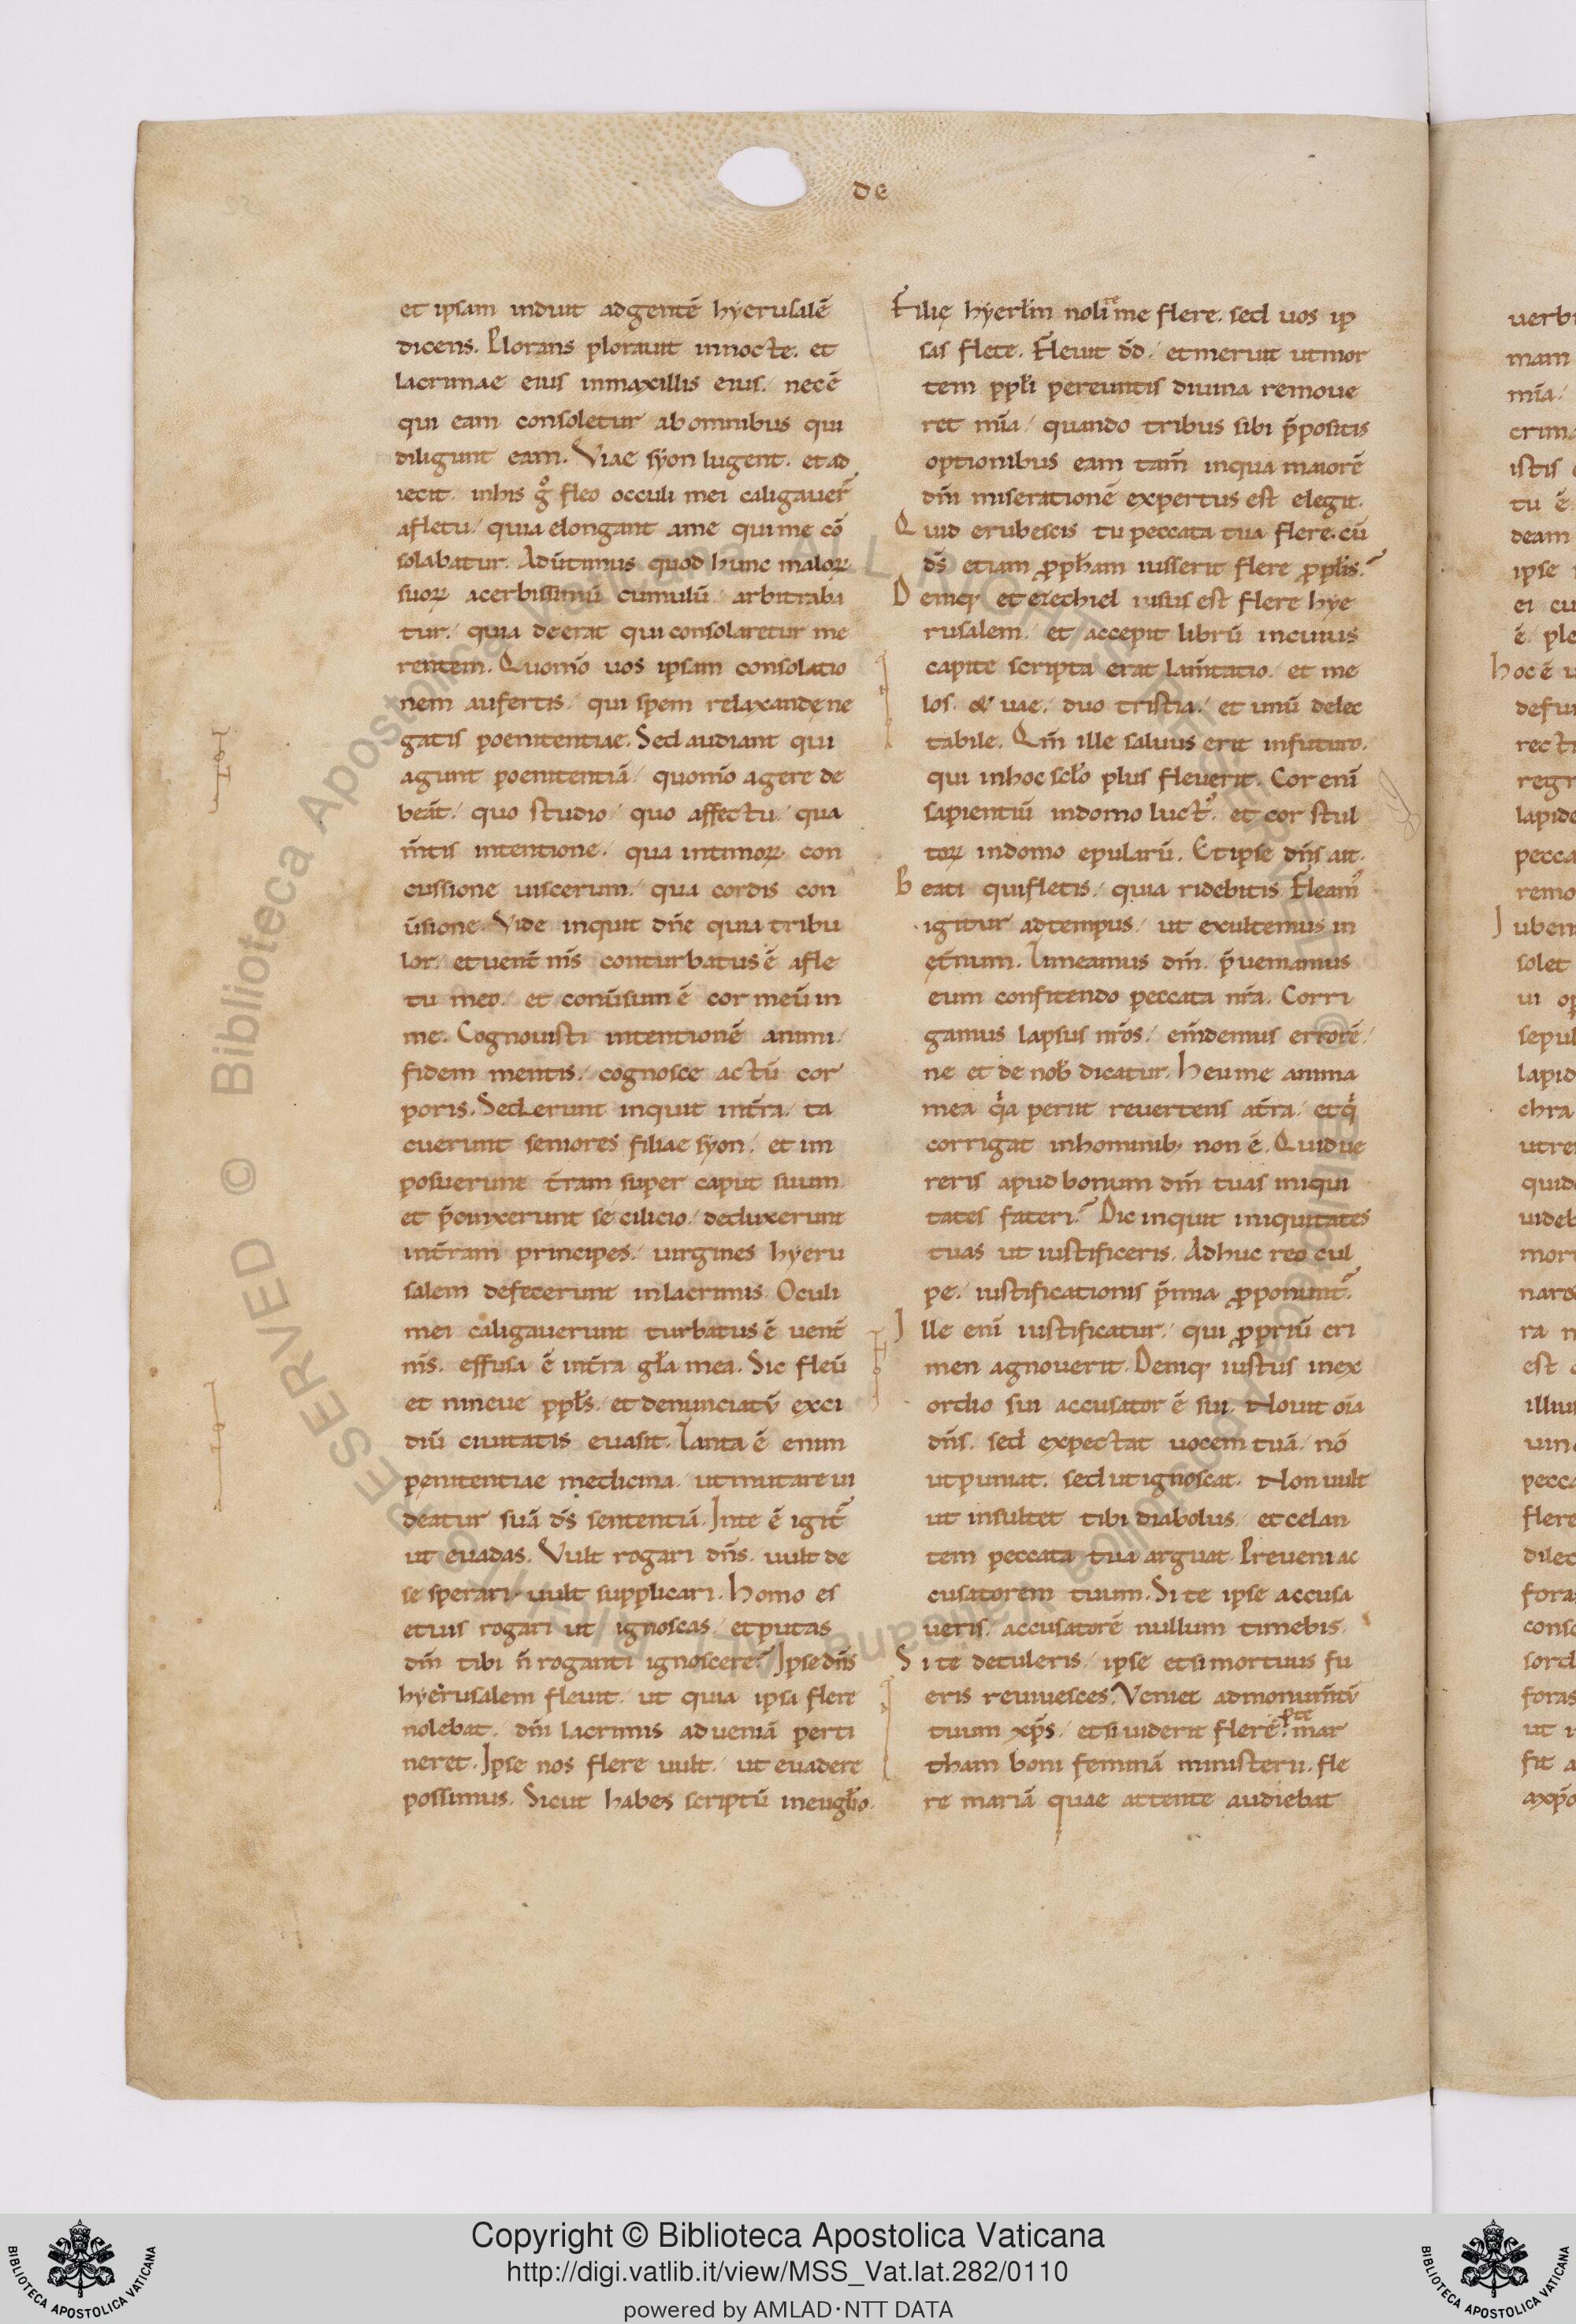 de
et ipsam induit adgentē hyerusalē
dicens. Plorans plorauit innocte. et
lacrimae eius inmaxillis eius. necē
qui eam consoletur abomnibus qui
diligunt eam. Viae syon lugent. et ad
iecit. inhis gͦ fleo occuli mei caligauer̄
afletu. quia elongant ame qui me cō
solabatur. Adūtimus quod hunc maloꝝ
suoꝝ acerbissimū cumulū arbitraba
tur. quia deerat qui consolaretur me
rentem. Quom̄o uos ipsam consolatio
nem aufertis. qui spem relaxandę ne
gatis poenitentiae. Sed audiant qui
agunt poenitentiā. quom̄o agere de
beāt. quo studio. quo affectu. qua
m̄tis intentione. qua intimoꝝ con
cussione uiscerum. qua cordis con
ūsione. Vide inquit dn̄e quia tribu
lor. et uent̄ m̄s conturbatus ē afle
tu meo. et conūsum ē cor meū in
me. Cognouisti intentionē animi.
fidem mentis. cognosce actū cor
poris. Sederunt inquit int̄ra. ta
cuerunt seniores filiae syon. et im
posuerunt t̄ram super caput suum.
et p̄cinxerunt se cilicio. deduxerunt
int̄ram principes. uirgines hyeru
salem defecerunt inlacrimis. Oculi
mei caligauerunt turbatus ē uent̄
m̄s. effusa ē int̄ra gl̄a mea. Sic fleū
et nineue ppl̄s. et denunciatū exci
diū ciuitatis euasit. Tanta ē enim
pęnitentiae medicina. ut mutare ui
deatur suā d̄s sententiā. Inte ē igit̄
ut euadas. Vult rogari dn̄s. uult de
se sperari. uult supplicari. Homo es
et uis rogari ut ignoscas. et putas
dm̄ tibi n̄ roganti ignoscere? Ipse dn̄s
hyerusalem fleuit. ut quia ipsa flere
nolebat. dm̄ lacrimis ad ueniā perti
neret. Ipse nos flere uult. ut euadere
possimus. Sicut habes scriptū ineugl̄io.
Filię hyerl̄m nolite me flere. sed uos ip
sas flete. Fleuit d̄d. et meruit ut mor
tem ppl̄i pereuntis diuina remoue
ret mīa. quando tribus sibi p̄positis
optionibus eam tam̄ inqua maiorē
dm̄i miserationē expertus est elegit.
Quid erubescis tu peccata tua flere. cū
d̄s etiam ꝓph̄am iusserit flere ꝓ ppl̄is?
Deniqꝫ et ezechiel iussus est flere hye
rusalem. et accepit librū incuius
capite scripta erat lam̄tatio. et me
los. & uae. duo tristia. et unū delec
tabile. Qm̄ ille saluus erit infuturo.
qui inhoc scl̄o plus fleuerit. Cor enī
sapientiū indomo luct᷒. et cor stul
toꝝ indomo epularū. Et ipse dn̄s ait.
Beati qui fletis. quia ridebitis. Fleam᷒
igitur adtempus. ut exultemus in
ęt̄num. Timeamus dm̄. p̄ueniamus
eum confitendo peccata nr̄a. Corri
gamus lapsus nr̄os. em̄demus errorē.
ne et de nob̄ dicatur. Heu me anima
mea qͥa periit reuertens at̄ra. et qͥ
corrigat inhominibꝫ non ē. Quid ue
reris apud bonum dm̄ tuas iniqui
tates fateri? Dic inquit iniquitates
tuas ut iustificeris. Adhuc reo cul
pe. iustificationis p̄mia ꝓponunt̄.
Ille enī iustificatur. qui ꝓpriū cri
men agnouerit. Deniqꝫ iustus inex
ordio sui accusator ē sui. Nouit oīa
dn̄s. sed expectat uocem tuā. nō
ut puniat. sed ut ignoscat. Non uult
ut insultet tibi diabolus. et celan
tem peccata tua arguat. Preueni ac
cusatorem tuum. Si te ipse accusa
ueris. accusatorē nullum timebis.
Si te detuleris. ipse etsi mortuus fu
eris reuiuesces. Veniet admonum̄tū
tuum xp̄s. et si uiderit flere ꝓ te mar
tham boni feminā ministerii. fle
re mariā quae attente audiebat